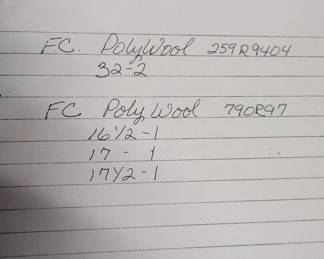 F.C. PolyWool 259R9404
32-2
FC Poly Wool 790R97
16½-1
17 - 1
17½-1